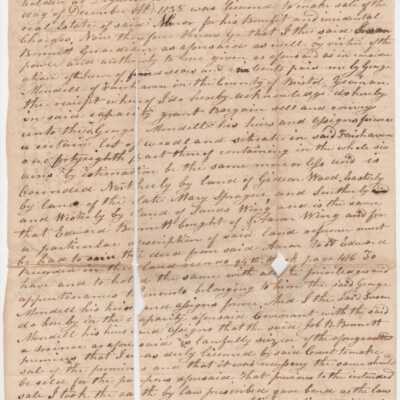 way of December AD. 1835 was licensed to make sale of the
real Estate of said Minor for his Benefit and incidental
charges. Now therefore know ye that I the said Susan
Bennett Guardian as aforesaid as well by virtue of the
power and authority to me given as aforesaid as in consider
ation of the sum of four dollars and to me paid by George
Mendell of Fairhaven in the County of Bristol, Yeoman,
the receipt whereof I do hereby acknowledge, do hereby
in said capacity grant Bargain sell and convey
unto the said George Mendell his heirs and assigns forever
a certain lot of woodland situate in said Fairhaven
one forty eighth part thereof containing in the whole six
acres by estimation be the same more or less and is
bounded Northerly by land of Gideon Wood, Easterly
by land of the late Mary Sprague, and Southerly
and Westerly by land of Wing and is the same
that Edward Bennett bought of Aaron Wing and for
a particular description of said land reference must
be had to the deed from said Aaron to Edward
Recorded in the land records 94th Book page 416 To
have and to hold the same with all the privileges and
appurtenances thereunto belonging to him the said George
Mendell his heirs and assigns forever. And I the said Susan
do hereby in the capacity aforesaid Covenant with the said
Mendell his heirs and assigns that the said Job B. Bennett
a minor as aforesaid is lawfully seized of the aforegranted
premises that I was duly licensed by said Court to make
sale of the premises and that it was necessary the same should
be sold for the purposes aforesaid that previous to the intended
sale I took the oath by law prescribed gave bond as the law